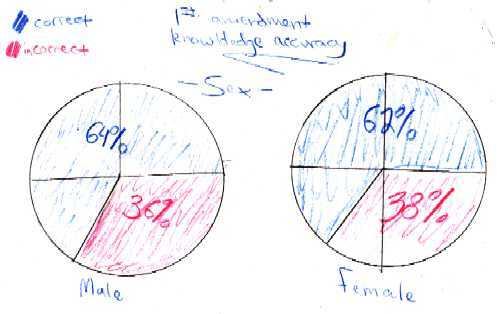 correct
incorrect
1st amendment
knowledge accuracy
- Sex -
64%
36%
62%
38%
Male
Female